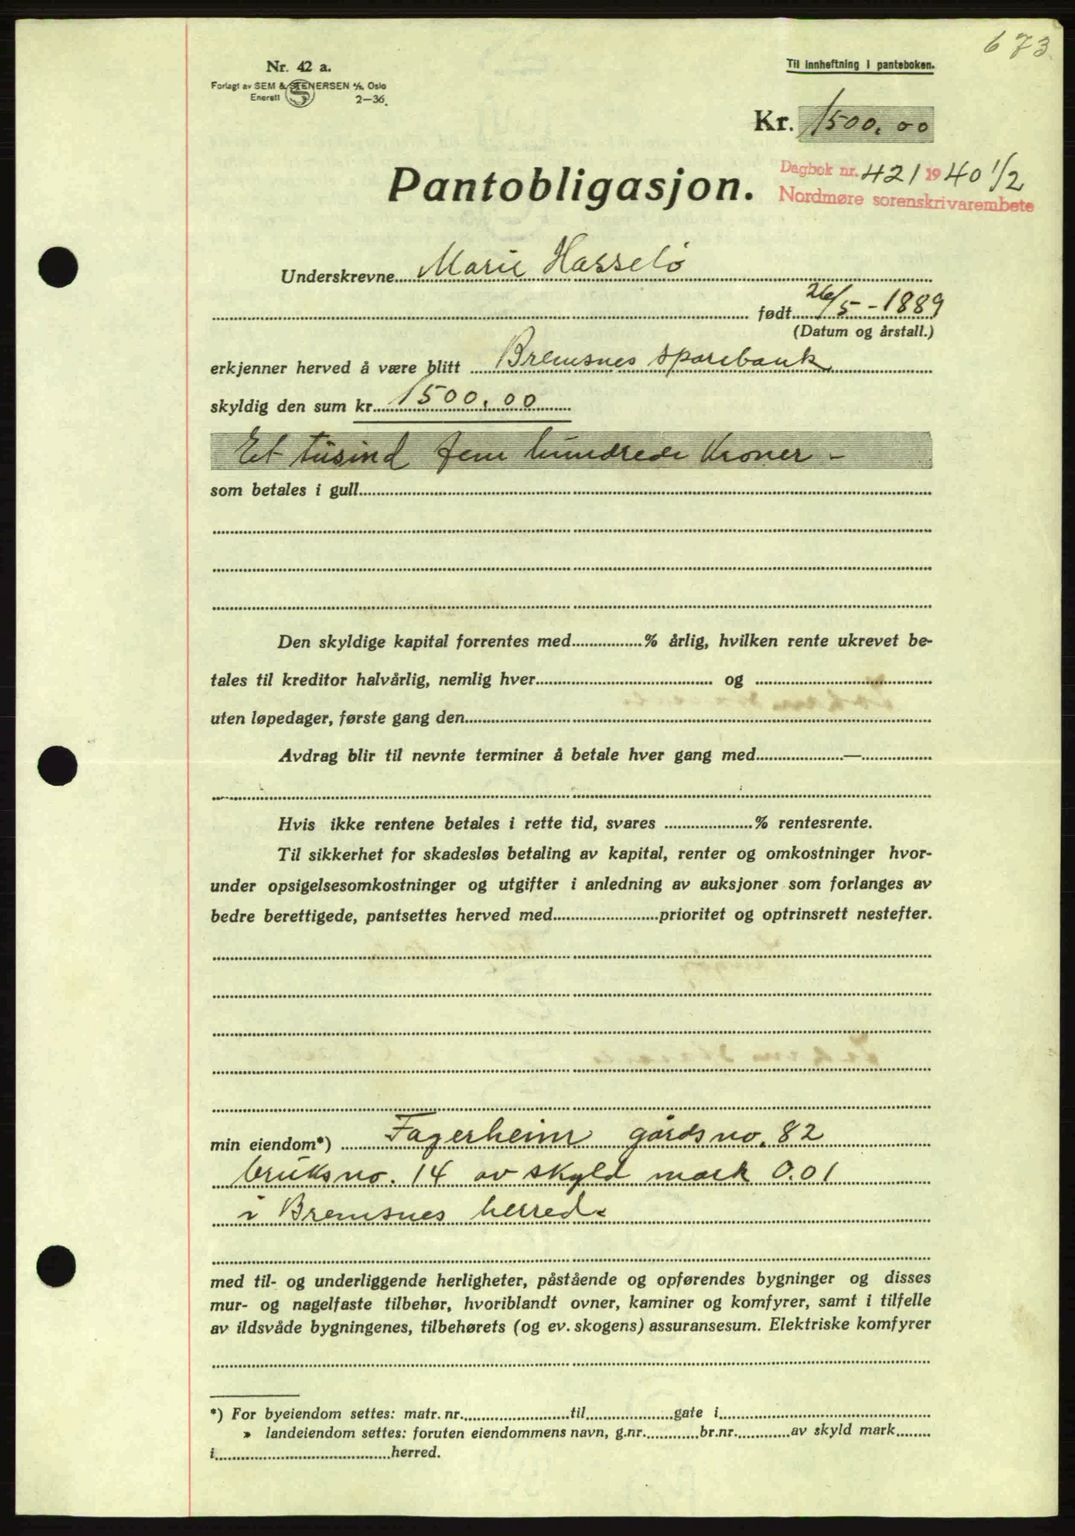 673
Nr. 42 a.
Forlagt av SEM & STENERSEN A/S, Oslo
Enerett 2—36.
Til innheftning i panteboken.
Kr. 1500,00
Pantobligasjon.
Dagbok nr. 421 1940 1/2
Nordmøre sorenskrivarembete
Underskrevne Marie Hasselø
født 26/5 - 1889
(Datum og årstall.)
erkjenner herved å være blitt Bremsnes sparebank
skyldig den sum kr. 1500,00
Et tusind fem hundrede Kroner -
som betales i gull
Den skyldige kapital forrentes med % årlig, hvilken rente ukrevet be-
tales til kreditor halvårlig, nemlig hver og
uten løpedager, første gang den
Avdrag blir til nevnte terminer å betale hver gang med —
Hvis ikke rentene betales i rette tid, svares % rentesrente.
Til sikkerhet for skadesløs betaling av kapital, renter og omkostninger hvor-
under opsigelsesomkostninger og utgifter i anledning av auksjoner som forlanges av
bedre berettigede, pantsettes herved med prioritet og optrinsrett nestefter.
min eiendom*) Fagerheim gårdsno. 82
bruksno. 14 av skyld mark 0.01
i Bremsnes herred.
med til- og underliggende herligheter, påstående og opførendes bygninger og disses
mur- og nagelfaste tilbehør, hvoriblandt ovner, kaminer og komfyrer, samt i tilfelle
av ildsvåde bygningenes, tilbehørets (og ev. skogens) assuransesum. Elektriske komfyrer
*) For byeiendom settes: matr. nr. til gate i
» landeiendom settes: foruten eiendommens navn, g.nr. br.nr. av skyld mark
i herred.